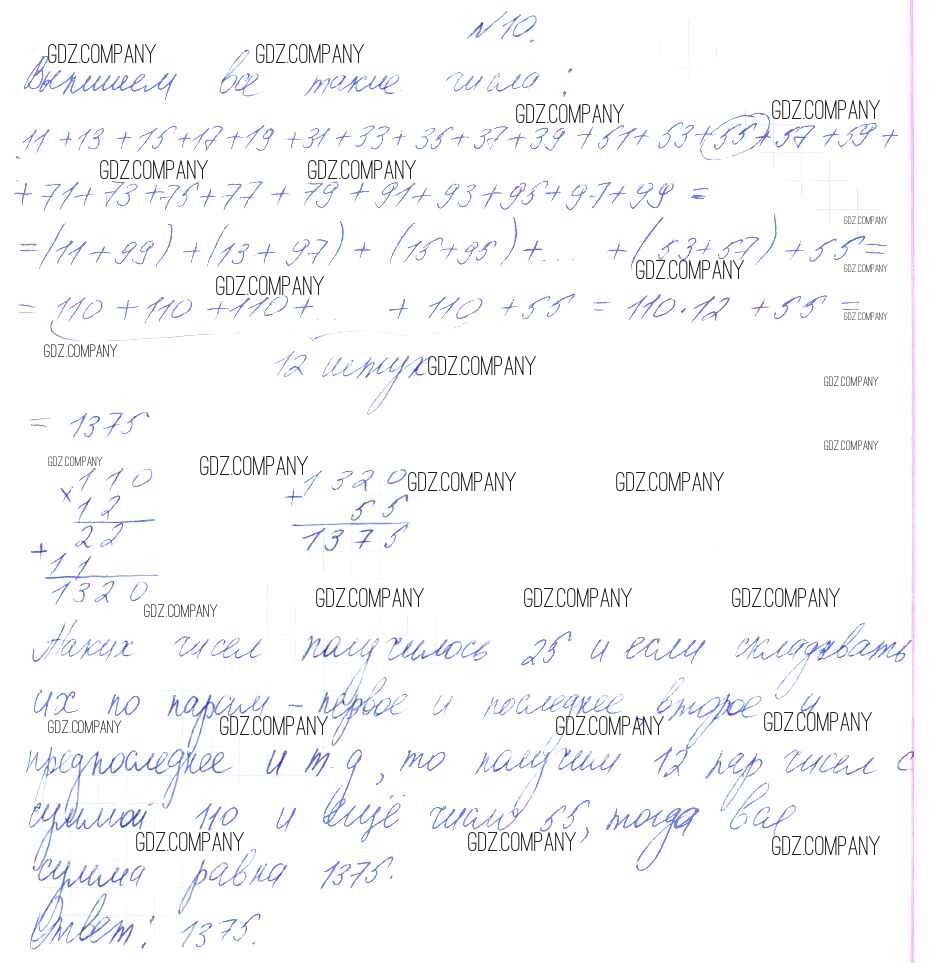 №10.
GDZ.COMPANY GDZ.COMPANY
Выпишем все такие числа:
GDZ.COMPANY GDZ.COMPANY
11+13+15+17+19+31+33+35+37+39+51+53+55+57+59+
GDZ.COMPANY GDZ.COMPANY
+71+73+75+77+79+91+93+95+97+99=
GDZ.COMPANY
=(11+99)+(13+97)+(15+95)+... +(53+57)+55=
GDZ.COMPANY GDZ.COMPANY GDZ.COMPANY
=110+110+110+... +110+55=110·12+55=
GDZ.COMPANY
GDZ.COMPANY 12 штук GDZ.COMPANY
GDZ.COMPANY
=1375
GDZ.COMPANY
GDZ.COMPANY GDZ.COMPANY GDZ.COMPANY GDZ.COMPANY
×110 +1320
12 55
22 1375
+11
1320
GDZ.COMPANY GDZ.COMPANY GDZ.COMPANY GDZ.COMPANY
Таких чисел получилось 25 и если складывать
их по парам – первое и последнее, второе и
GDZ.COMPANY GDZ.COMPANY GDZ.COMPANY GDZ.COMPANY
предпоследнее и т.д, то получим 12 пар чисел с
суммой 110 и ещё число 55, тогда вся
GDZ.COMPANY GDZ.COMPANY GDZ.COMPANY
сумма равна 1375.
Ответ: 1375.